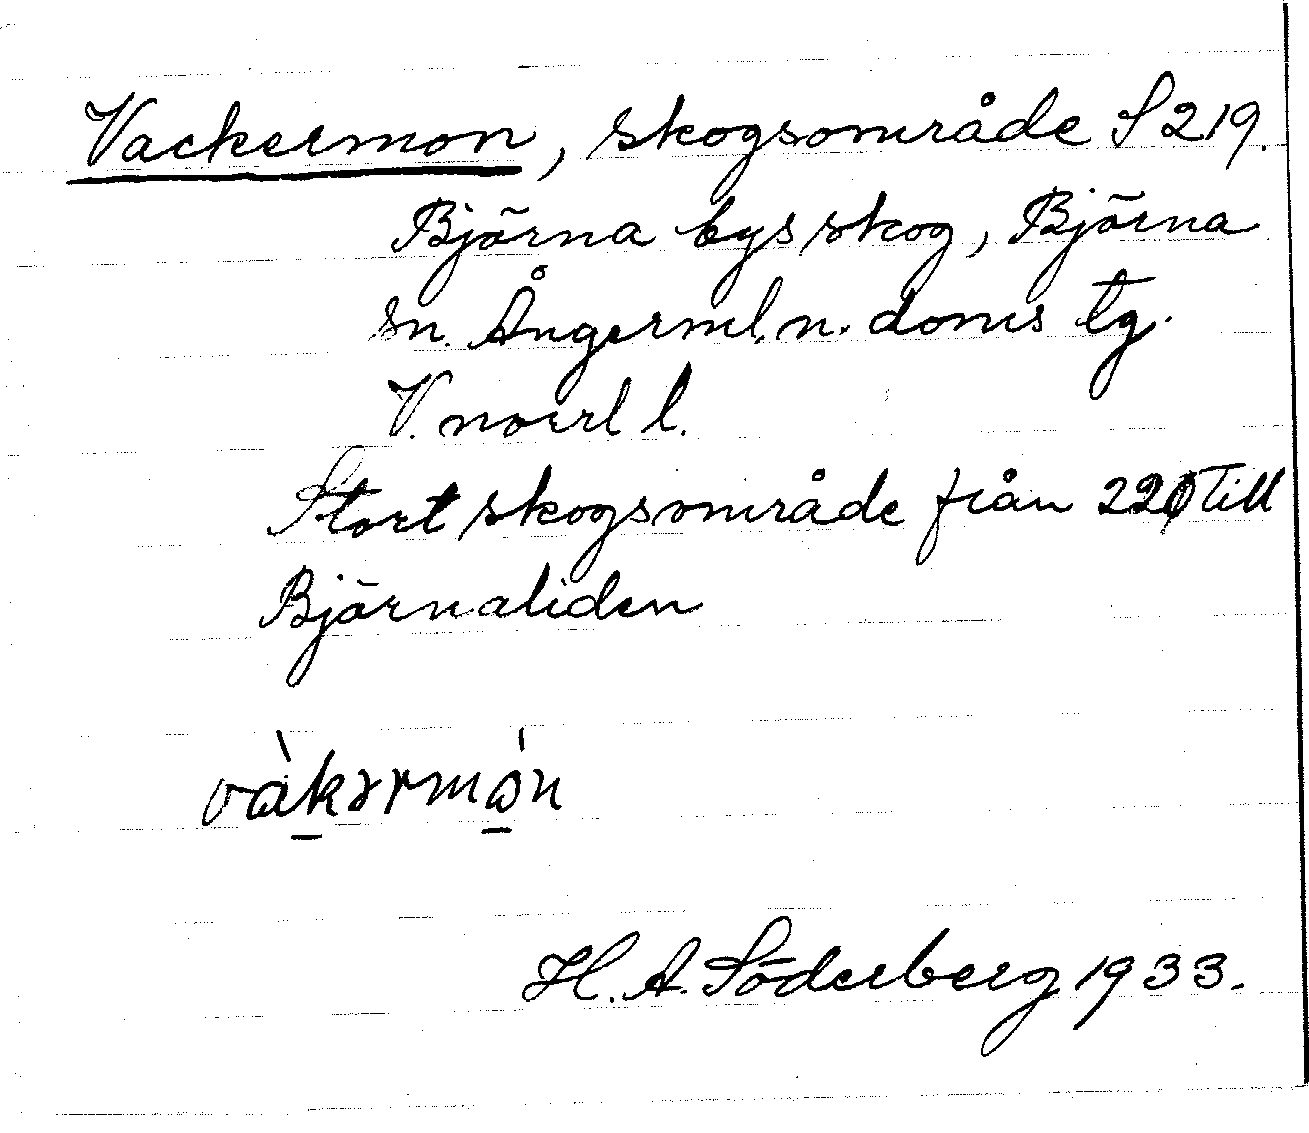 Vackermon, skogsområde S 219.
Björna bys skog, Björna
sn. Ångerml. n. doms tg.
V. norrl l.
Stort skogsområde från 220 till
Björnaliden
vàkərmón
H. A. Söderberg 1933.